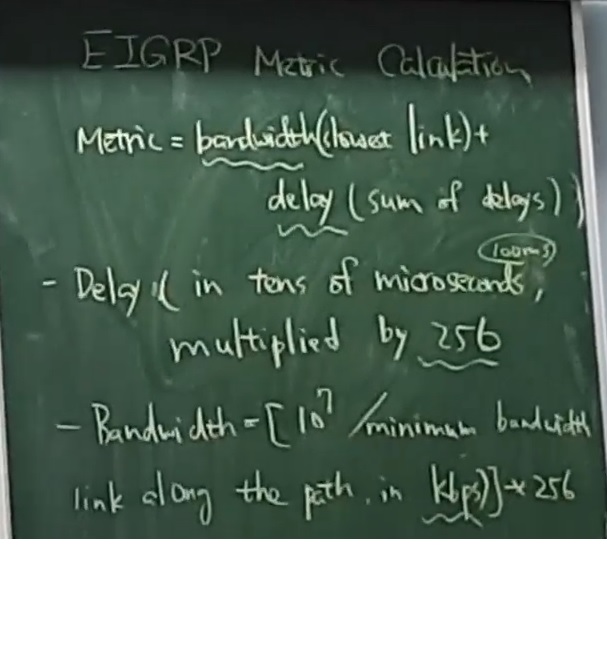 EIGRP Metric Calculation
Metric = bandwidth(slowest link)+
delay (sum of delays))
(100ms)
- Delay ( in tens of microseconds,
multiplied by 256
- Bandwidth = [10⁷ /minimum bandwidth
link along the path, in kbps)] * 256